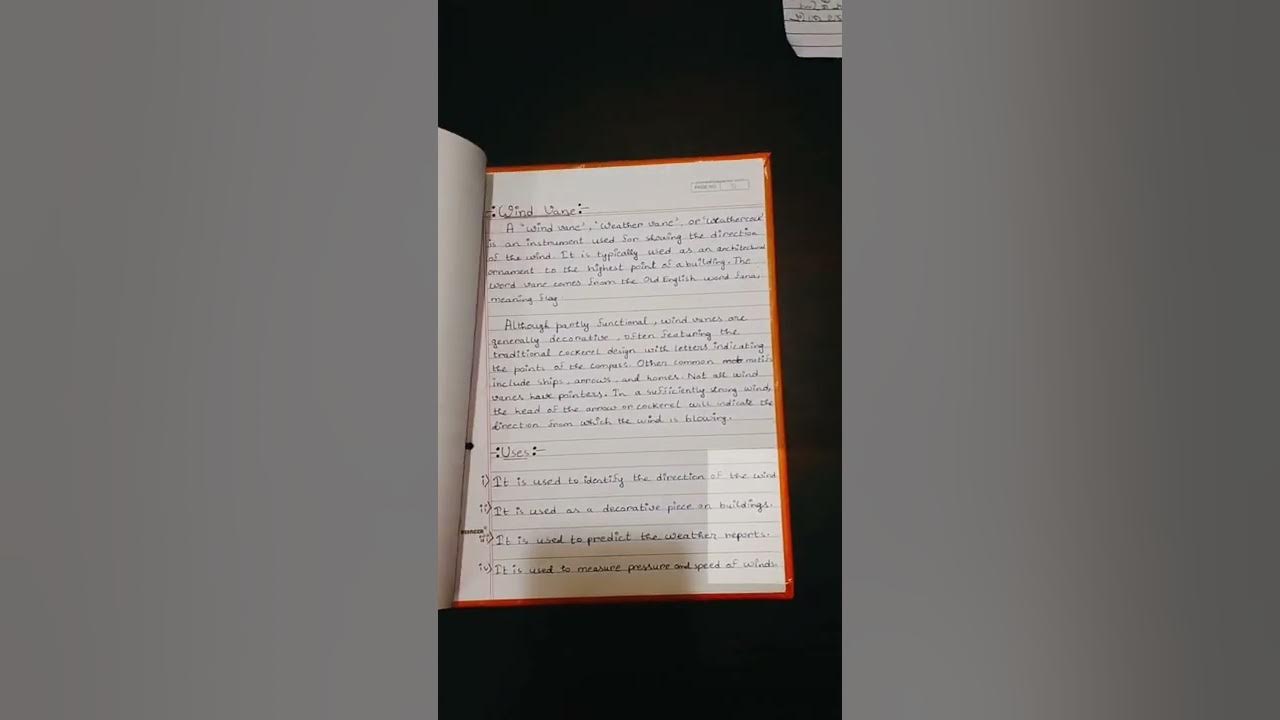 PAGE NO.
-:Wind Vane:-
A 'Wind vane', 'Weather vane', or 'Weathercock'
is an instrument used for showing the direction
of the wind. It is typically used as an architectural
ornament to the highest point of a building. The
word vane comes from the Old English word fana,
meaning flag.
Although partly functional, wind vanes are
generally decorative, often featuring the
traditional cockerel design with letters indicating
the points of the compass. Other common motifs
include ships, arrows, and homes. Not all wind
vanes have pointers. In a sufficiently strong wind,
the head of the arrow or cockerel will indicate the
direction from which the wind is blowing.
-:Uses:-
i) It is used to identify the direction of the wind
ii) It is used as a decorative piece on buildings.
iii) It is used to predict the weather reports.
iv) It is used to measure pressure and speed of winds.